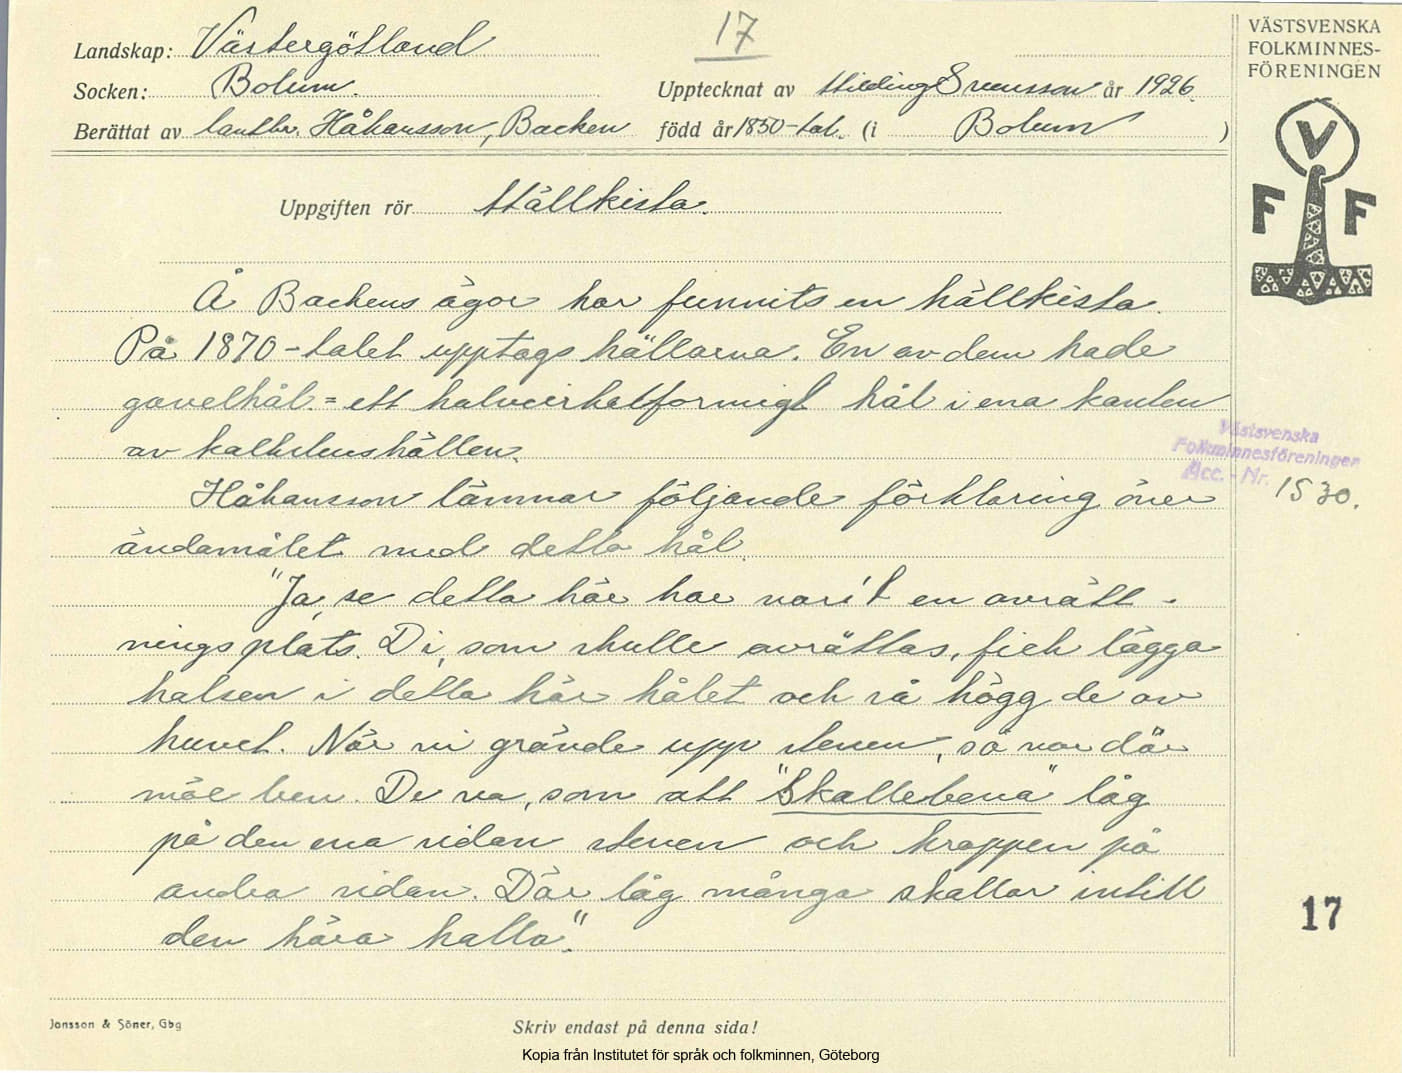 17
VÄSTSVENSKA
FOLKMINNES-
FÖRENINGEN
Landskap: Västergötland
Socken: Bolum. Upptecknat av Hilding Svensson år 1926.
Berättat av lantbr. Håkansson, Backen född år 1850-tal. (i Bolum )
V
F F
Uppgiften rör Hällkista.
Å Backens ägor har funnits en hällkista.
På 1870-talet upptogs hällarna. En av dem hade
gavelhål. = ett halvcirkelformigt hål i ena kanten
av kalkstenshällen.
Västsvenska
Folkminnesföreningen
Acc. - Nr. 1530.
Håkansson lämnar följande förklaring över
ändamålet med detta hål.
"Ja, se detta här har vari't en avrätt-
ningsplats. Di, som skulle avrättas, fick lägga
halsen i detta här hålet och så högg de av
huvet. När vi grävde upp stenen, så var där
möe ben. De va, som att "Skallebena" låg
på den ena sidan stenen och kroppen på
andra sidan. Där låg många skallar intill
den hära halla."
17
Jonsson & Söner, Gbg
Skriv endast på denna sida!
Kopia från Institutet för språk och folkminnen, Göteborg